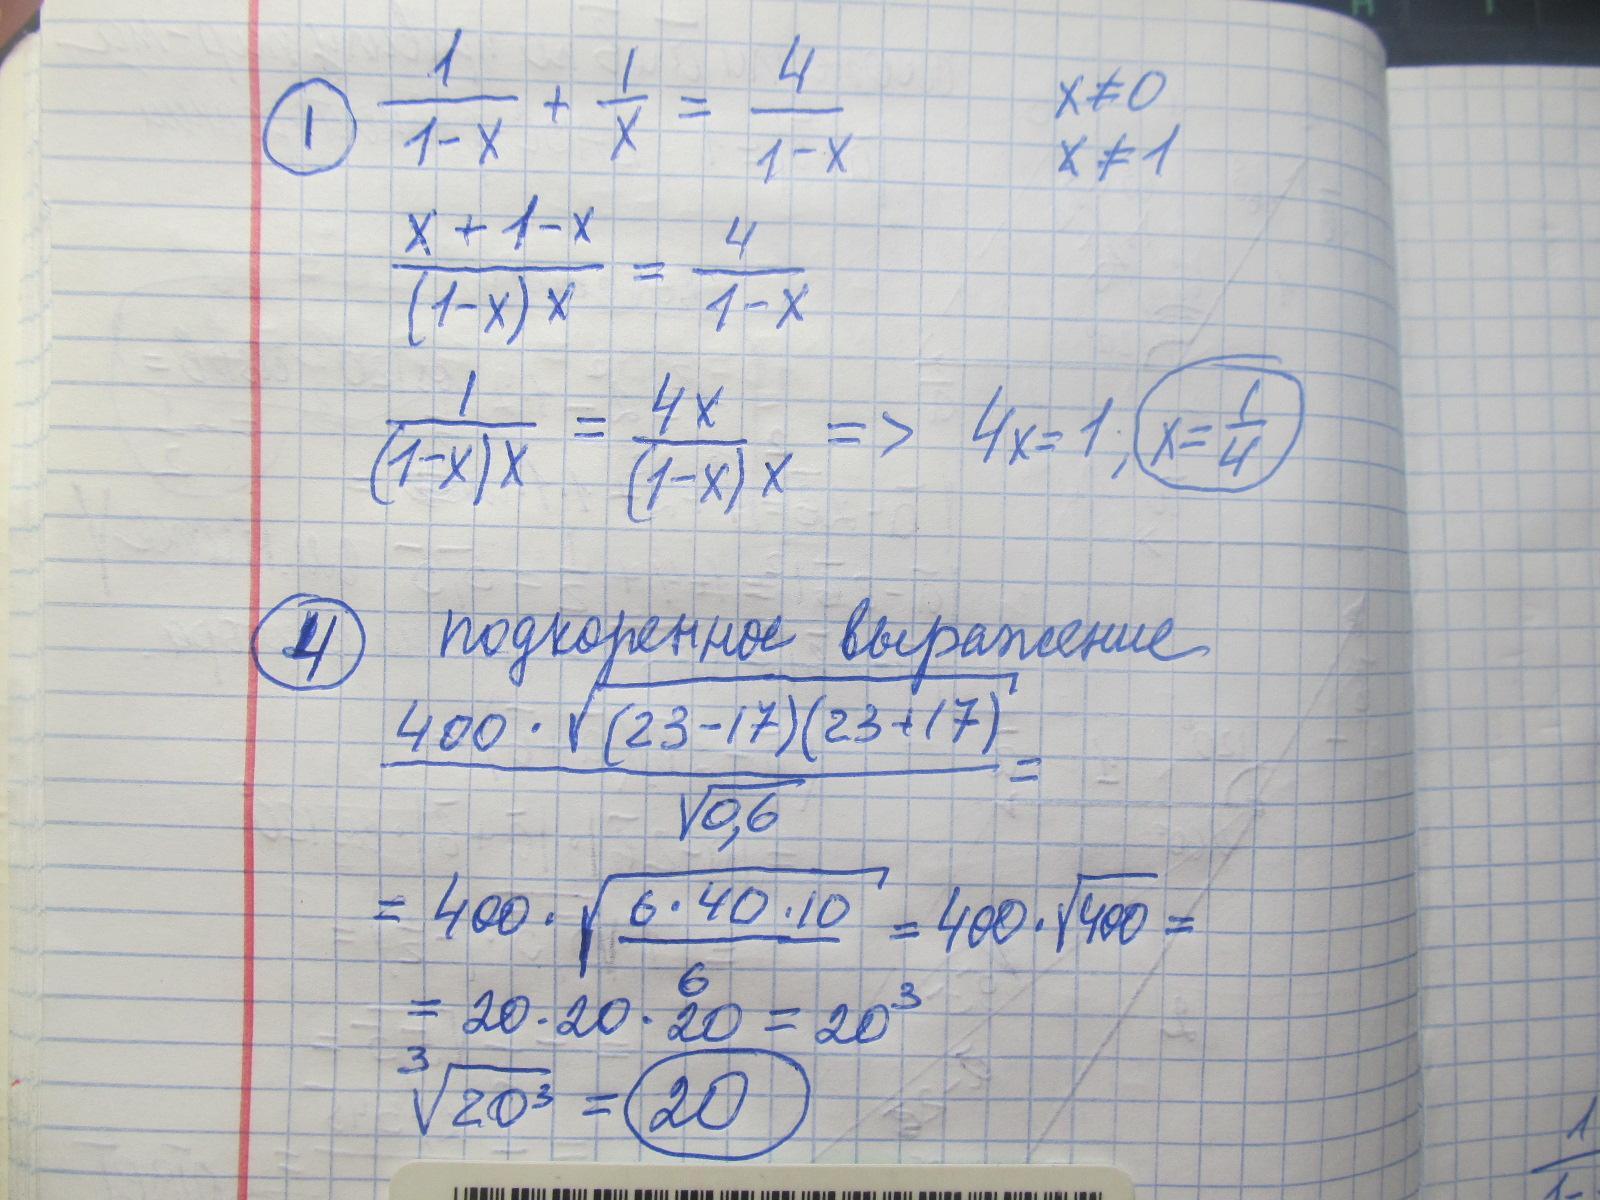 1 1/(1-x) + 1/x = 4/(1-x) x≠0
x≠1
(x+1-x)/((1-x)x) = 4/(1-x)
1/((1-x)x) = 4x/((1-x)x) => 4x=1; x=1/4
4 подкоренное выражение
400·√((23-17)(23+17))/√0,6 =
= 400·√(6·40·10/6) = 400·√400 =
= 20·20·20 = 20³
³√20³ = 20